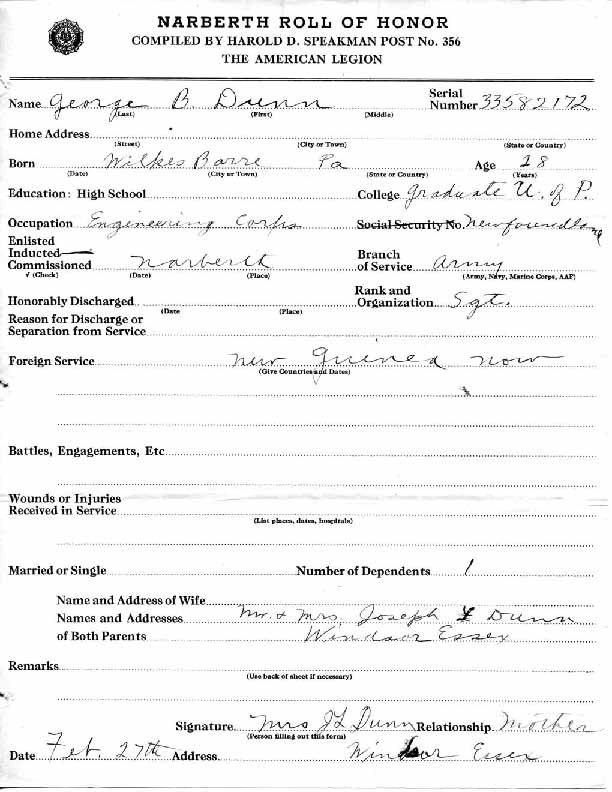 NARBERTH ROLL OF HONOR
COMPILED BY HAROLD D. SPEAKMAN POST No. 356
THE AMERICAN LEGION
Name George B. Dunn Serial Number 33582172
(Last) (First) (Middle)
Home Address
(Street) (City or Town) (State or Country)
Born Wilkes Barre Pa Age 28
(Date) (City or Town) (State or Country) (Years)
Education: High School College graduate U. of P.
Occupation Engineering Corps Social Security No. Newfoundland
Enlisted
Inducted
Commissioned Narberth Branch of Service Army
√ (Check) (Date) (Place) (Army, Navy, Marine Corps, AAF)
Honorably Discharged Rank and Organization Sgt.
(Date (Place)
Reason for Discharge or
Separation from Service
Foreign Service New Guinea now
(Give Countries and Dates)
Battles, Engagements, Etc
Wounds or Injuries
Received in Service
(List places, dates, hospitals)
Married or Single Number of Dependents 1
Name and Address of Wife
Names and Addresses Mr. & Mrs. Joseph Dunn
of Both Parents Windsor Essex
Remarks
(Use back of sheet if necessary)
Signature Mrs JL Dunn Relationship Mother
(Person filling out this form)
Date Feb. 27th Address Windsor Essex